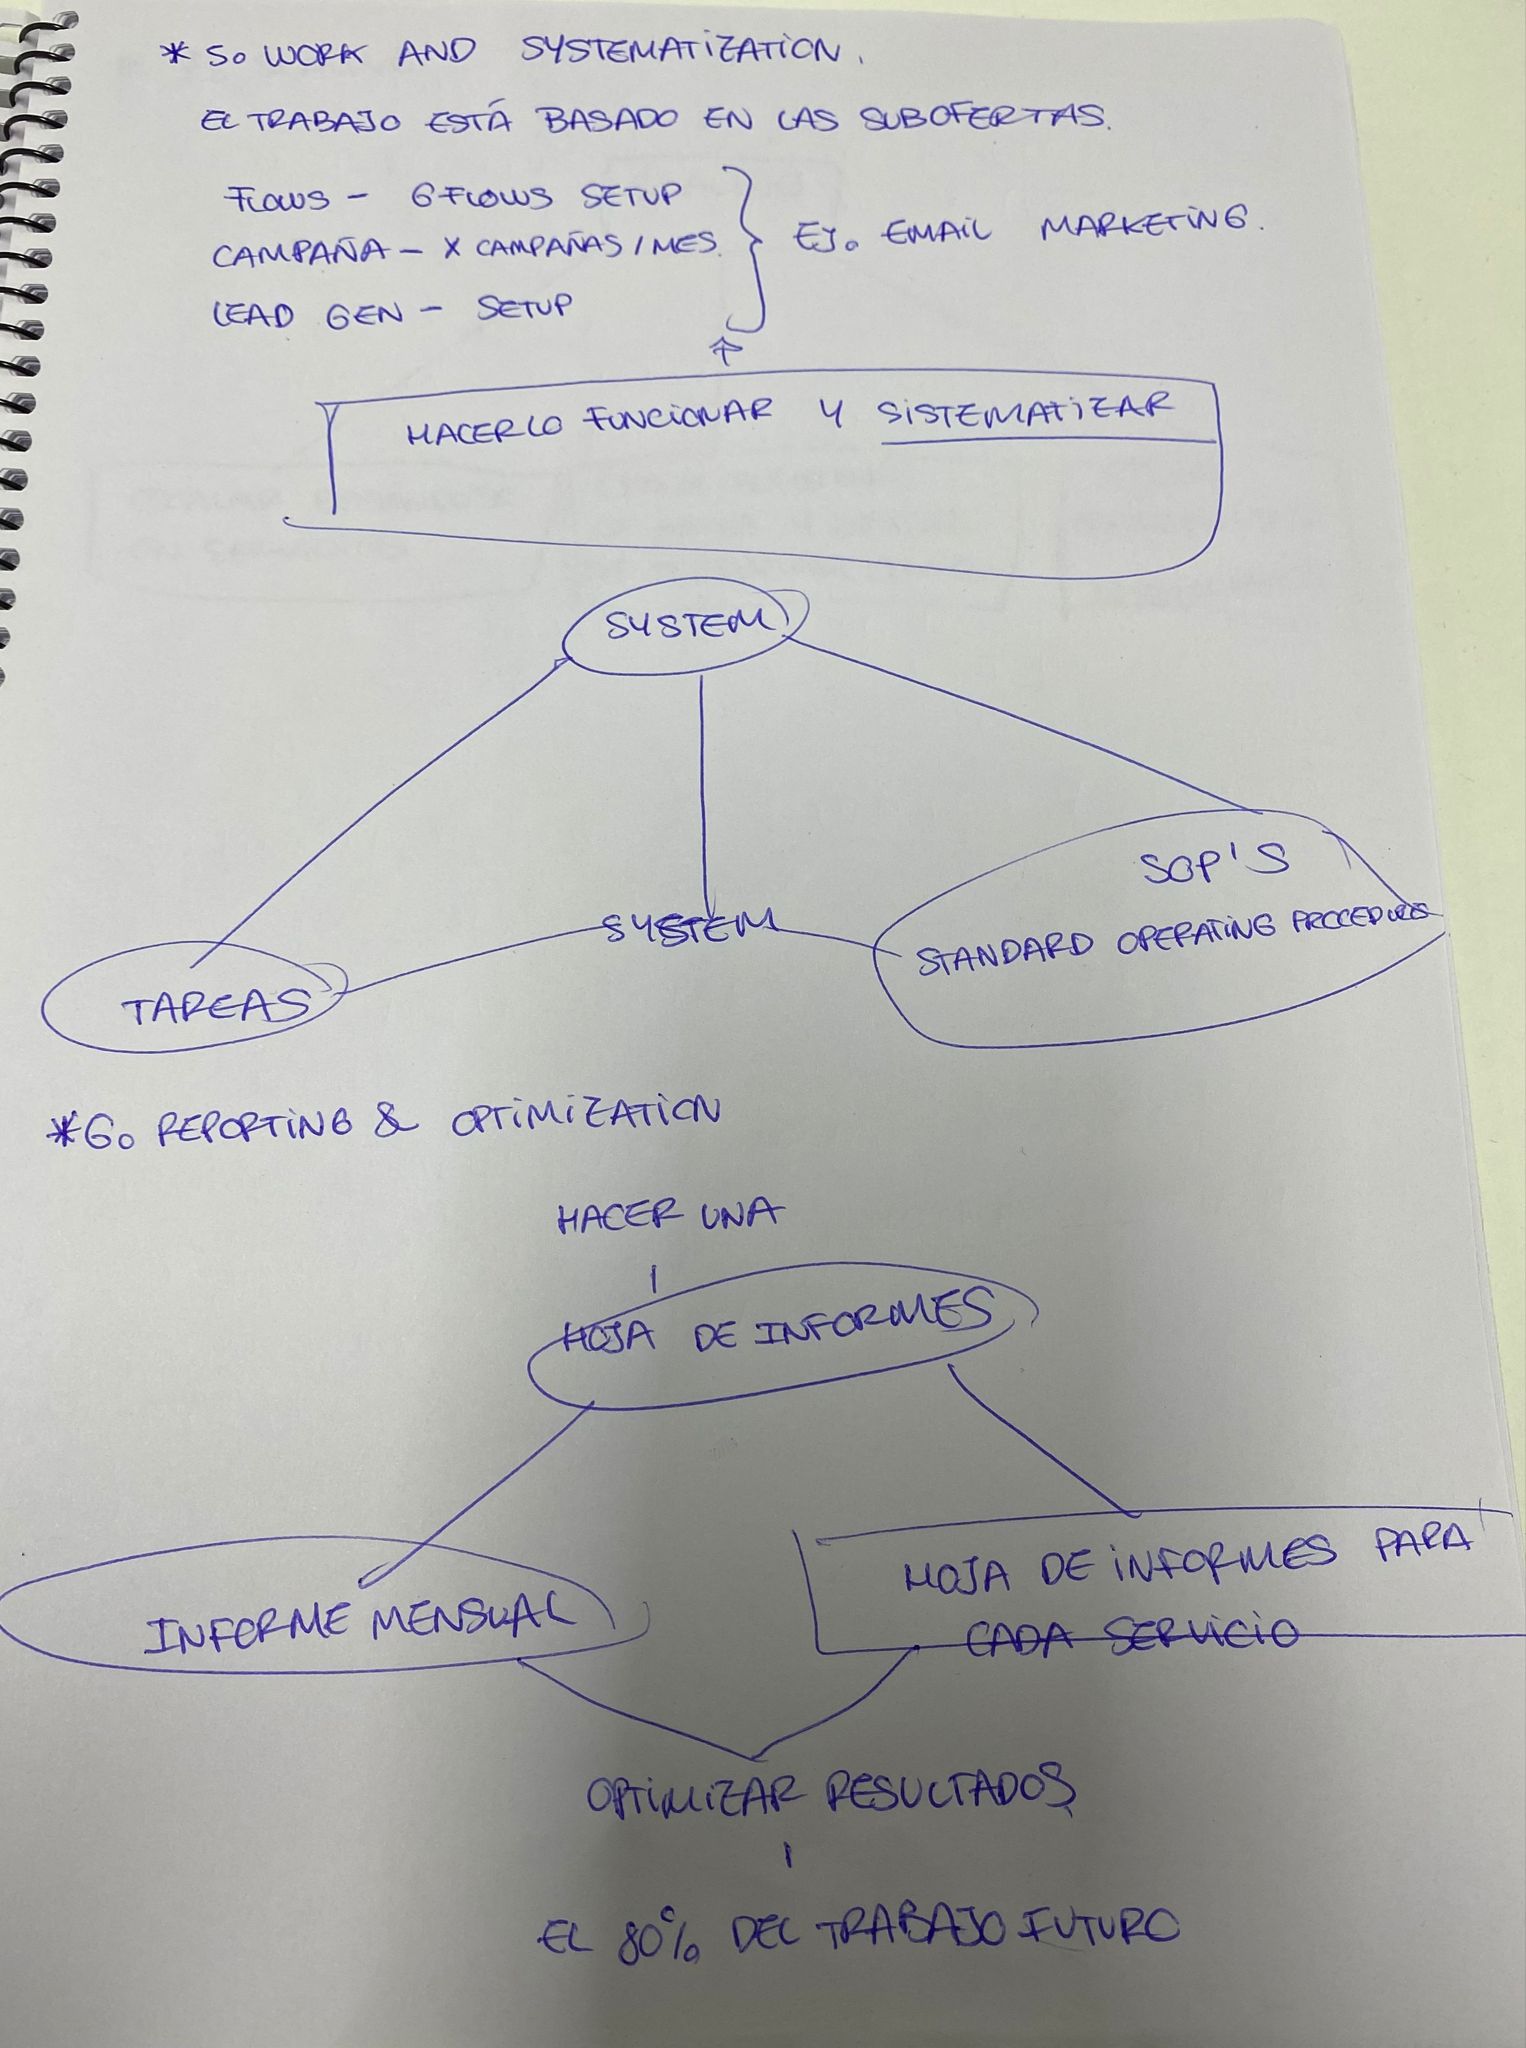 * 5. WORK AND SYSTEMATIZATION.
EL TRABAJO ESTÁ BASADO EN LAS SUBOFERTAS.
FLOWS - 6 FLOWS SETUP
CAMPAÑA - X CAMPAÑAS/MES.
EJ. EMAIL MARKETING.
LEAD GEN - SETUP
HACERLO FUNCIONAR Y SISTEMATIZAR
SYSTEM
SOP'S
STANDARD OPERATING PROCEDURES
SYSTEM
TAREAS
* 6. REPORTING & OPTIMIZATION
HACER UNA
HOJA DE INFORMES
HOJA DE INFORMES PARA
CADA SERVICIO
INFORME MENSUAL
OPTIMIZAR RESULTADOS
EL 80% DEL TRABAJO FUTURO